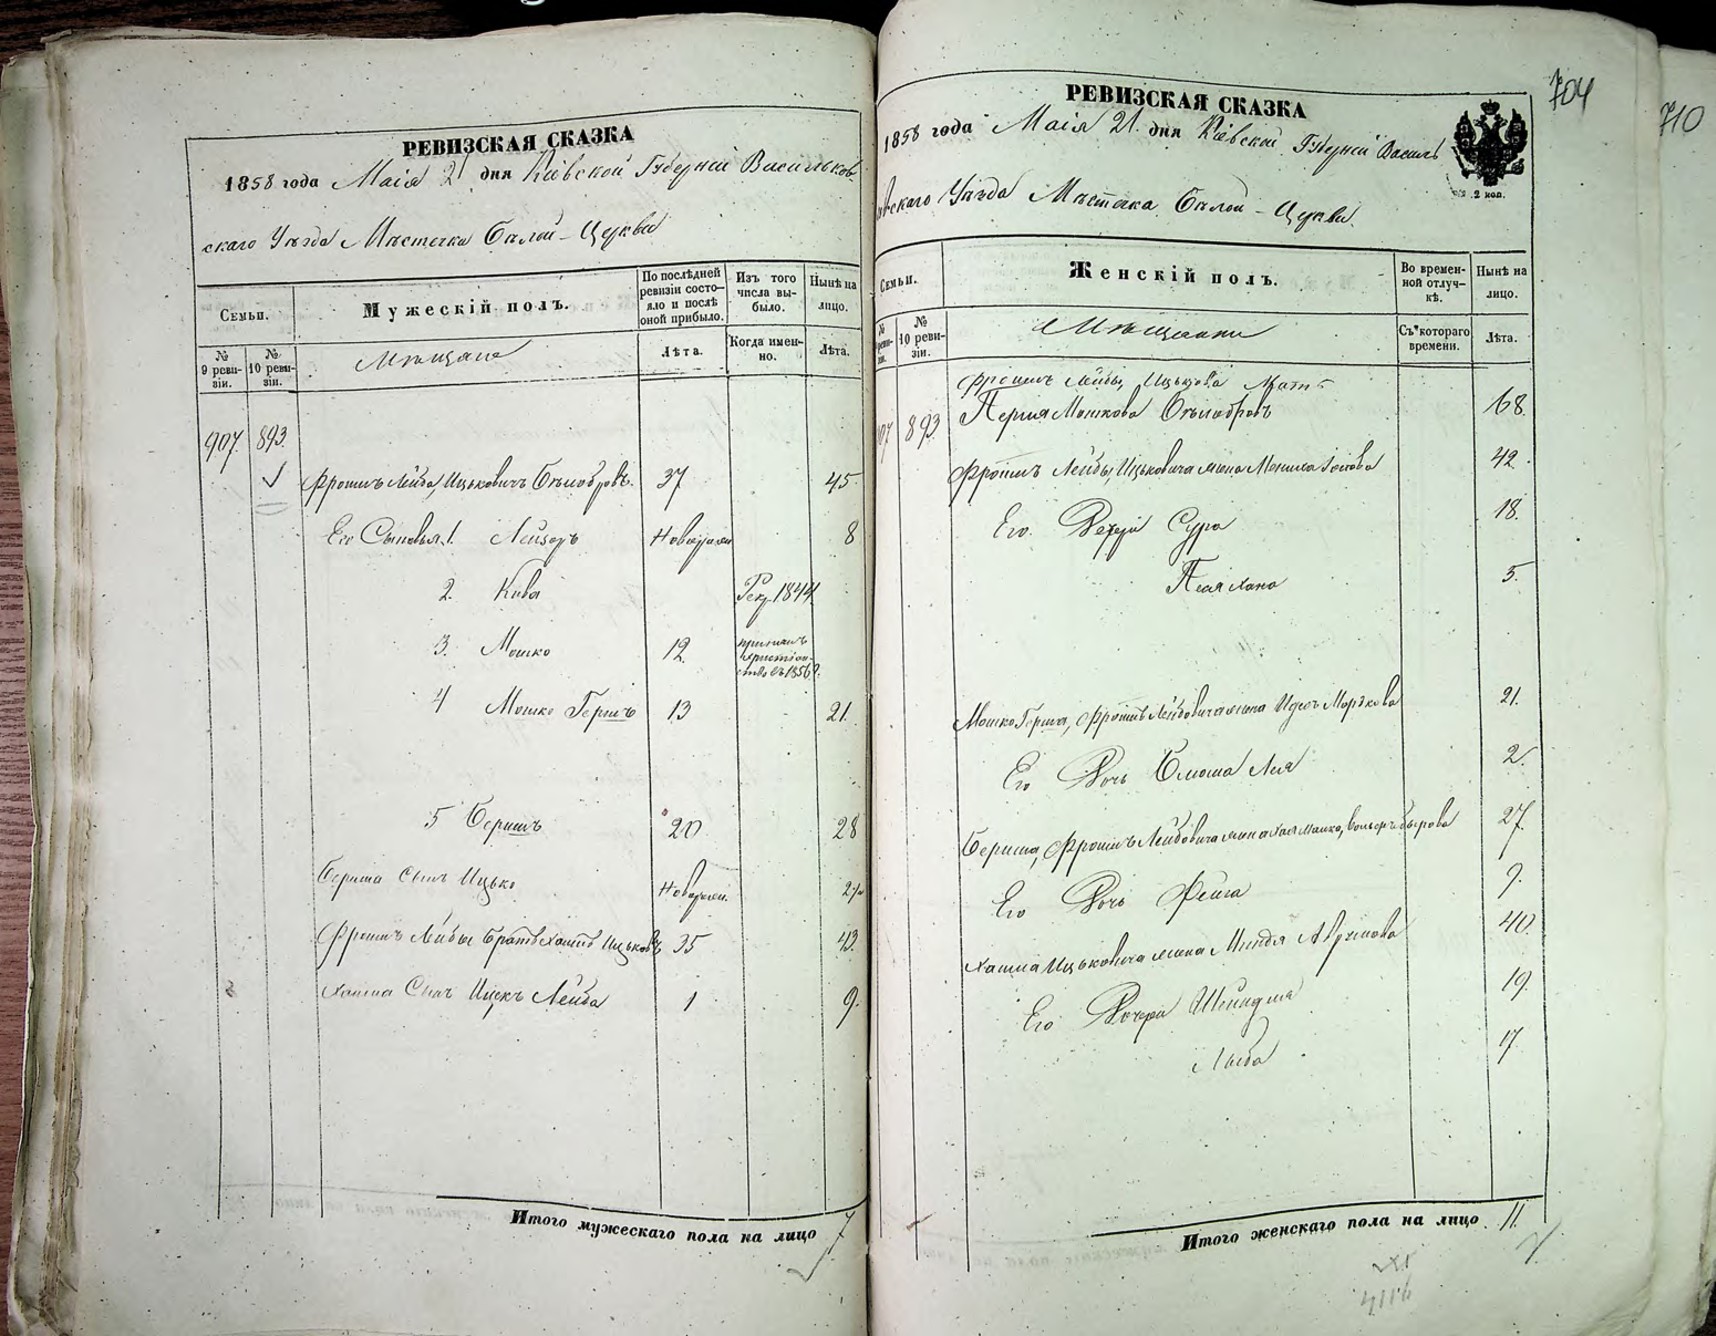 РЕВИЗСКАЯ СКАЗКА
1858 года Маія 21 дня Кіевской Губерніи Васильков-
скаго Уѣзда Мѣстечка Бѣлой-Церкви
Семьи.
Мужескій полъ.
По послѣдней ревизіи состо-яло и послѣ оной прибыло.
Изъ того числа вы-было.
Нынѣ на лицо.
№ 9 реви-зіи.
№ 10 реви-зіи.
Мѣщане
Лѣта.
Когда имен-но.
Лѣта.
907. 893.
Фроимъ Лейба, Ицьковичъ 37 45
Его Сыновья 1. Лейзоръ Новорожд 8
2. Кива Рекр. 1844
3. Мошко 12 принялъ христіан-ство въ 1856 г.
4 Мошко Гершъ 13 21.
5 Беришъ 20 28
Бериша Сынъ Ицько Новорожд.
Фроимъ Лейбы Братъ Хаимъ Ицьковъ 35 43.
Хаима Сынъ Ицекъ Лейба 1 9.
Итого мужескаго пола на лицо 7
РЕВИЗСКАЯ СКАЗКА
704
710
1858 года Маія 21 дня Кіевской Губерніи Василь
ковскаго Уѣзда Мѣстечка Бѣлой-Церкви.
2 коп.
Семьи.
Женскій полъ.
Во времен-ной отлуч-кѣ.
Нынѣ на лицо.
№ 10 реви-зіи.
Мѣщанки
Съ котораго времени.
Лѣта.
Фроимъ Лейбы, Ицькова Мать
893 Перля Мошкова 68
Фроимъ Лейбы, Ицьковича жена 42.
Его Дочери Сура 18.
Песя Хана 5.
Мошко Герша, Фроимъ Лейбовича жена Мордкова 21.
Его Дочь Лея 2.
Бериша, Фроимъ Лейбовича жена 27.
Его Дочь Фейга 9.
Хаима Ицьковича жена Миндля Аврумова 40.
Его Дочери Шейндля 19.
17
Итого женскаго пола на лицо 11.